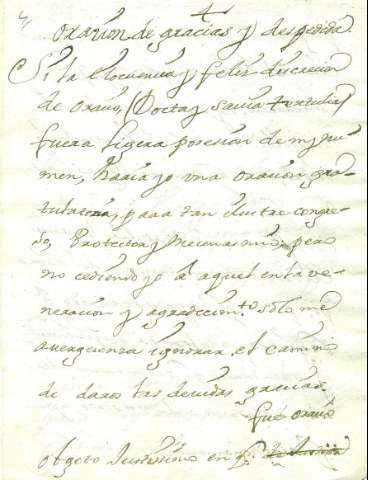 Oración de gracias y despedida
Si la elocuencia y feliz discrecion
de oraxio, (Docta y savia tertulia)
fuera ligera posesión de my nu-
men, haria yo una oración gra-
tulatoria, para tan ilustre congre-
so, Protector y Mecenas mio; pero
no cediendo yo a aquel en la ve-
neracion y agradecim.to solo me
averguenza ignorar el camino
de daros las devidas gracias.
Fué
obgeto Justissimo en